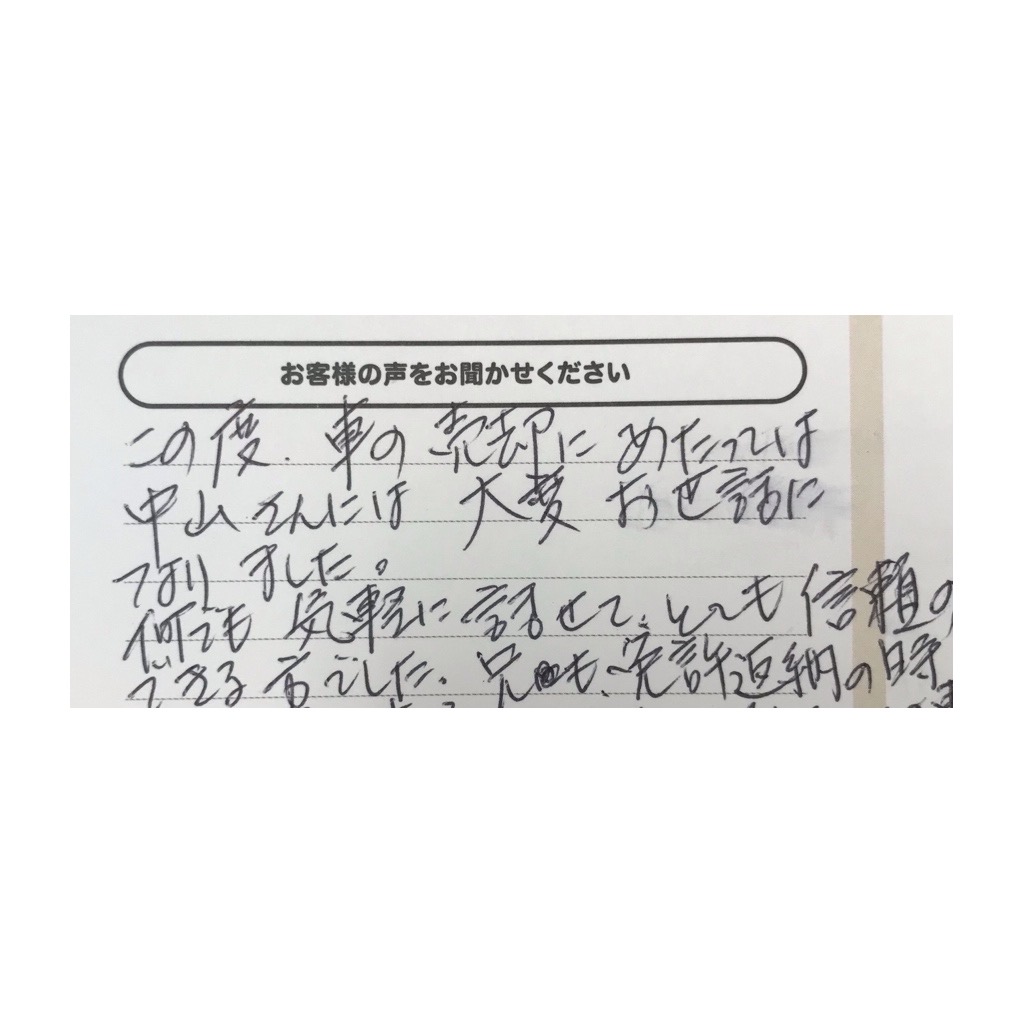 お客様の声をお聞かせください
この度、車の売却にあたっては
中山さんには 大変 お世話に
なりました。
何でも 気軽に 話せて、とても 信頼の
できる 方でした。兄も、免許返納の時